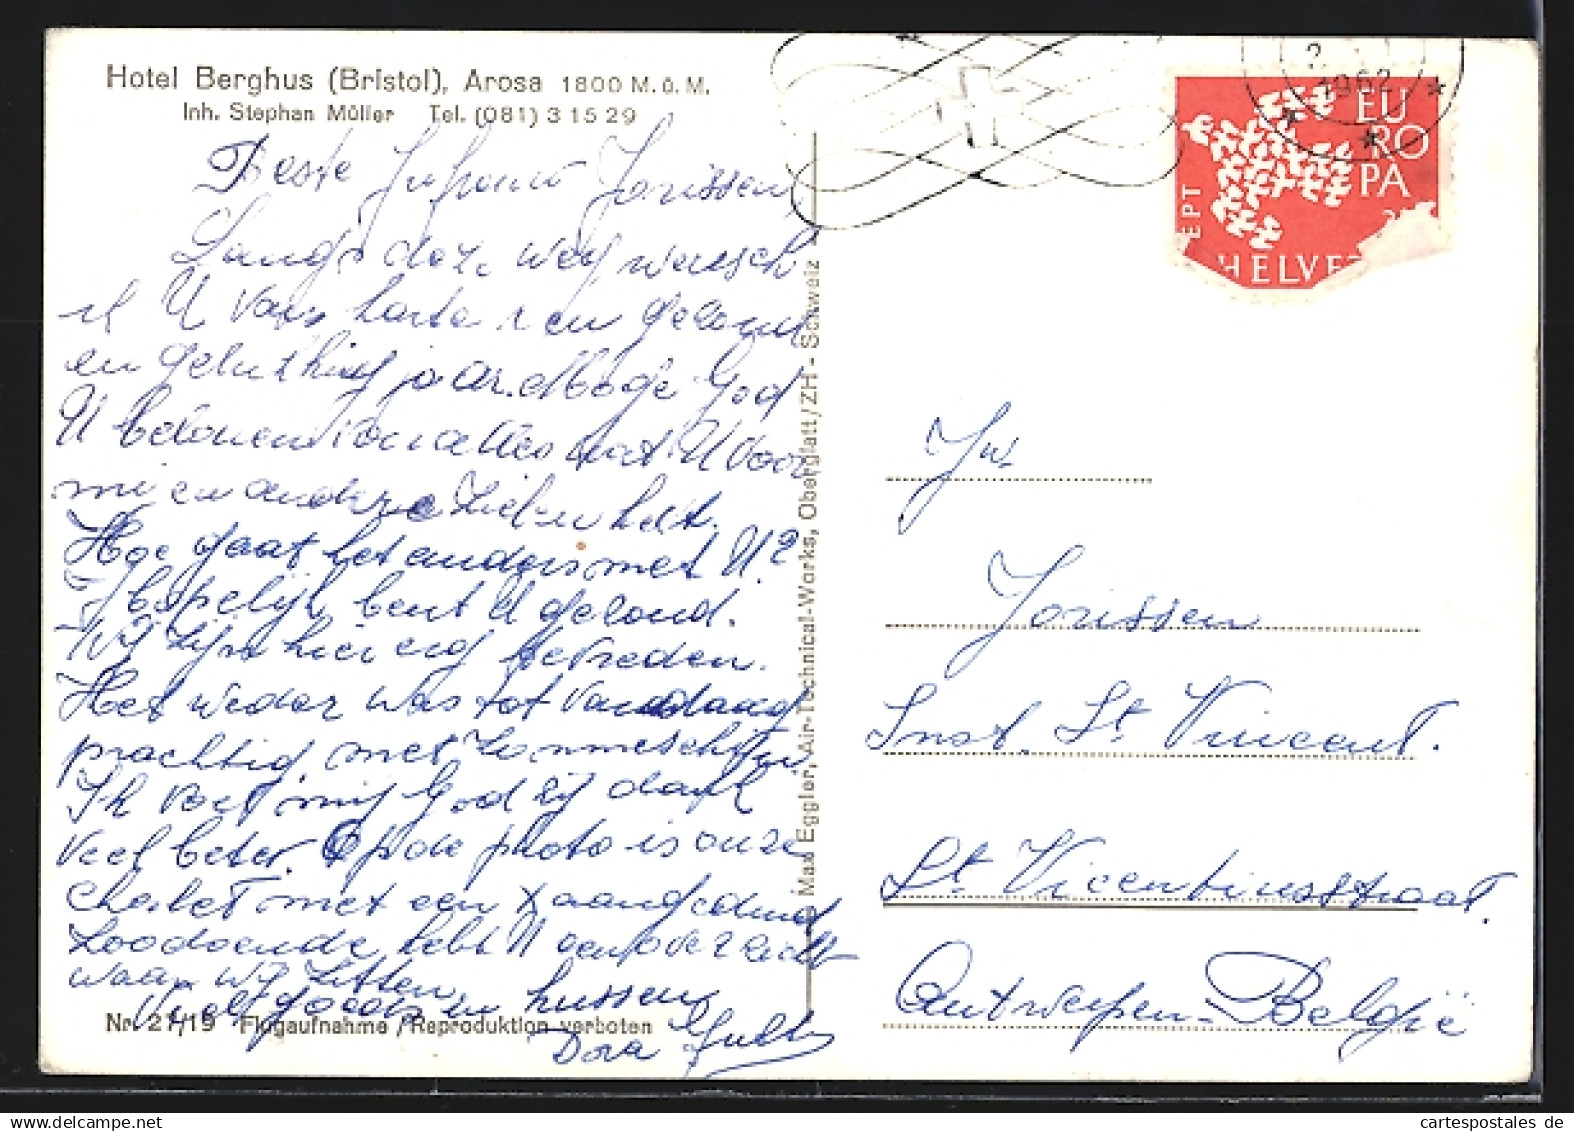 Hotel Berghus (Bristol), Arosa 1800 M.ü.M.
Inh. Stephan Müller Tel. (081) 3 15 29
Beste Jufrouw Jorissen,
Langs deze weg wensch
ik U vars harte een gezond
en gelukkig jaar. Moge God
U beloonen voor alles wat U voor
mij en andere zieken hebt.
Hoe gaat het anders met U?
Ik hoop bent U gezond.
Wij zijn hier erg tevreden.
Het weder was tot vandaag
prachtig, met zonneschijn.
Ik voel mij God zij dank
veel beter. Op de photo is onze
chalet met een x aangeduid
zoodoende hebt U een overzicht
waar wij zitten.
Veel groeten en kussen,
Dora
Nr. 21/19 Flugaufnahme / Reproduktion verboten
Max Eggler, Air-Technical-Works, Oberglatt/ZH - Schweiz
? 1962
EUROPA
SEPT
HELVE
Jw.
Jorissen
Inst. St. Vincent.
St. Vicentiusstraat.
Antwerpen-België
cartespostales.de